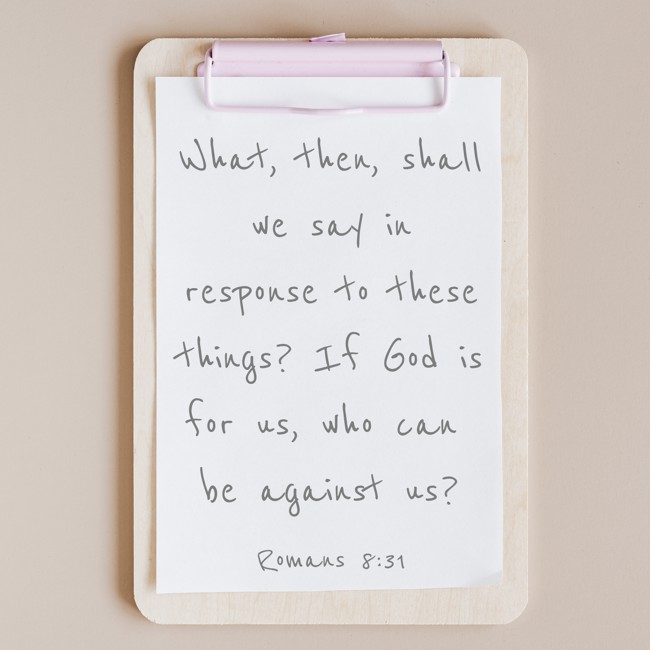 What, then, shall
we say in
response to these
things? If God is
for us, who can
be against us?
Romans 8:31